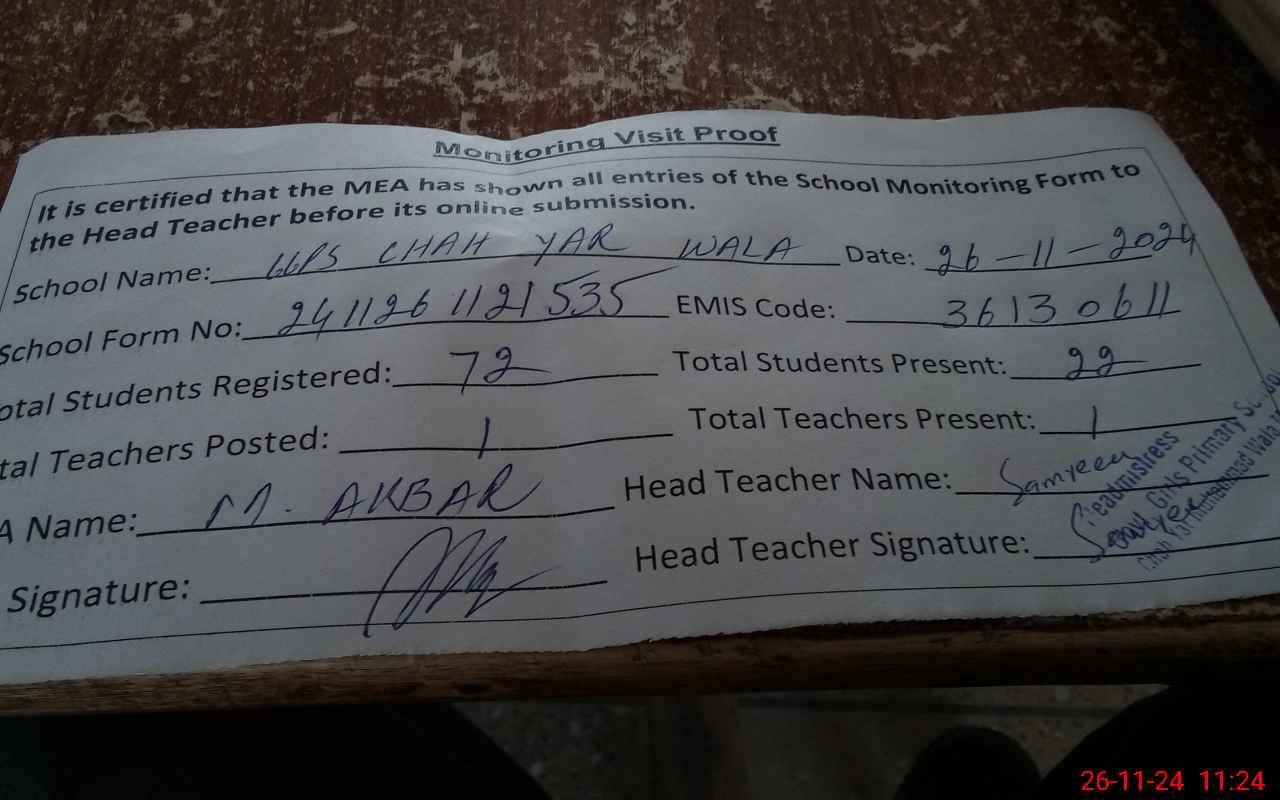 Monitoring Visit Proof
It is certified that the MEA has shown all entries of the School Monitoring Form to
the Head Teacher before its online submission.
School Name: GGPS CHAH YAR WALA Date: 26-11-2024
School Form No: 241126 1121535 EMIS Code: 36130611
otal Students Registered: 72 Total Students Present: 22
tal Teachers Posted: 1 Total Teachers Present: 1
A Name: M. AKBAR Head Teacher Name: Samreen
Signature: Head Teacher Signature:
Headmistress
Girls Primary
Chah Yar Muhammad Wala
26-11-24 11:24